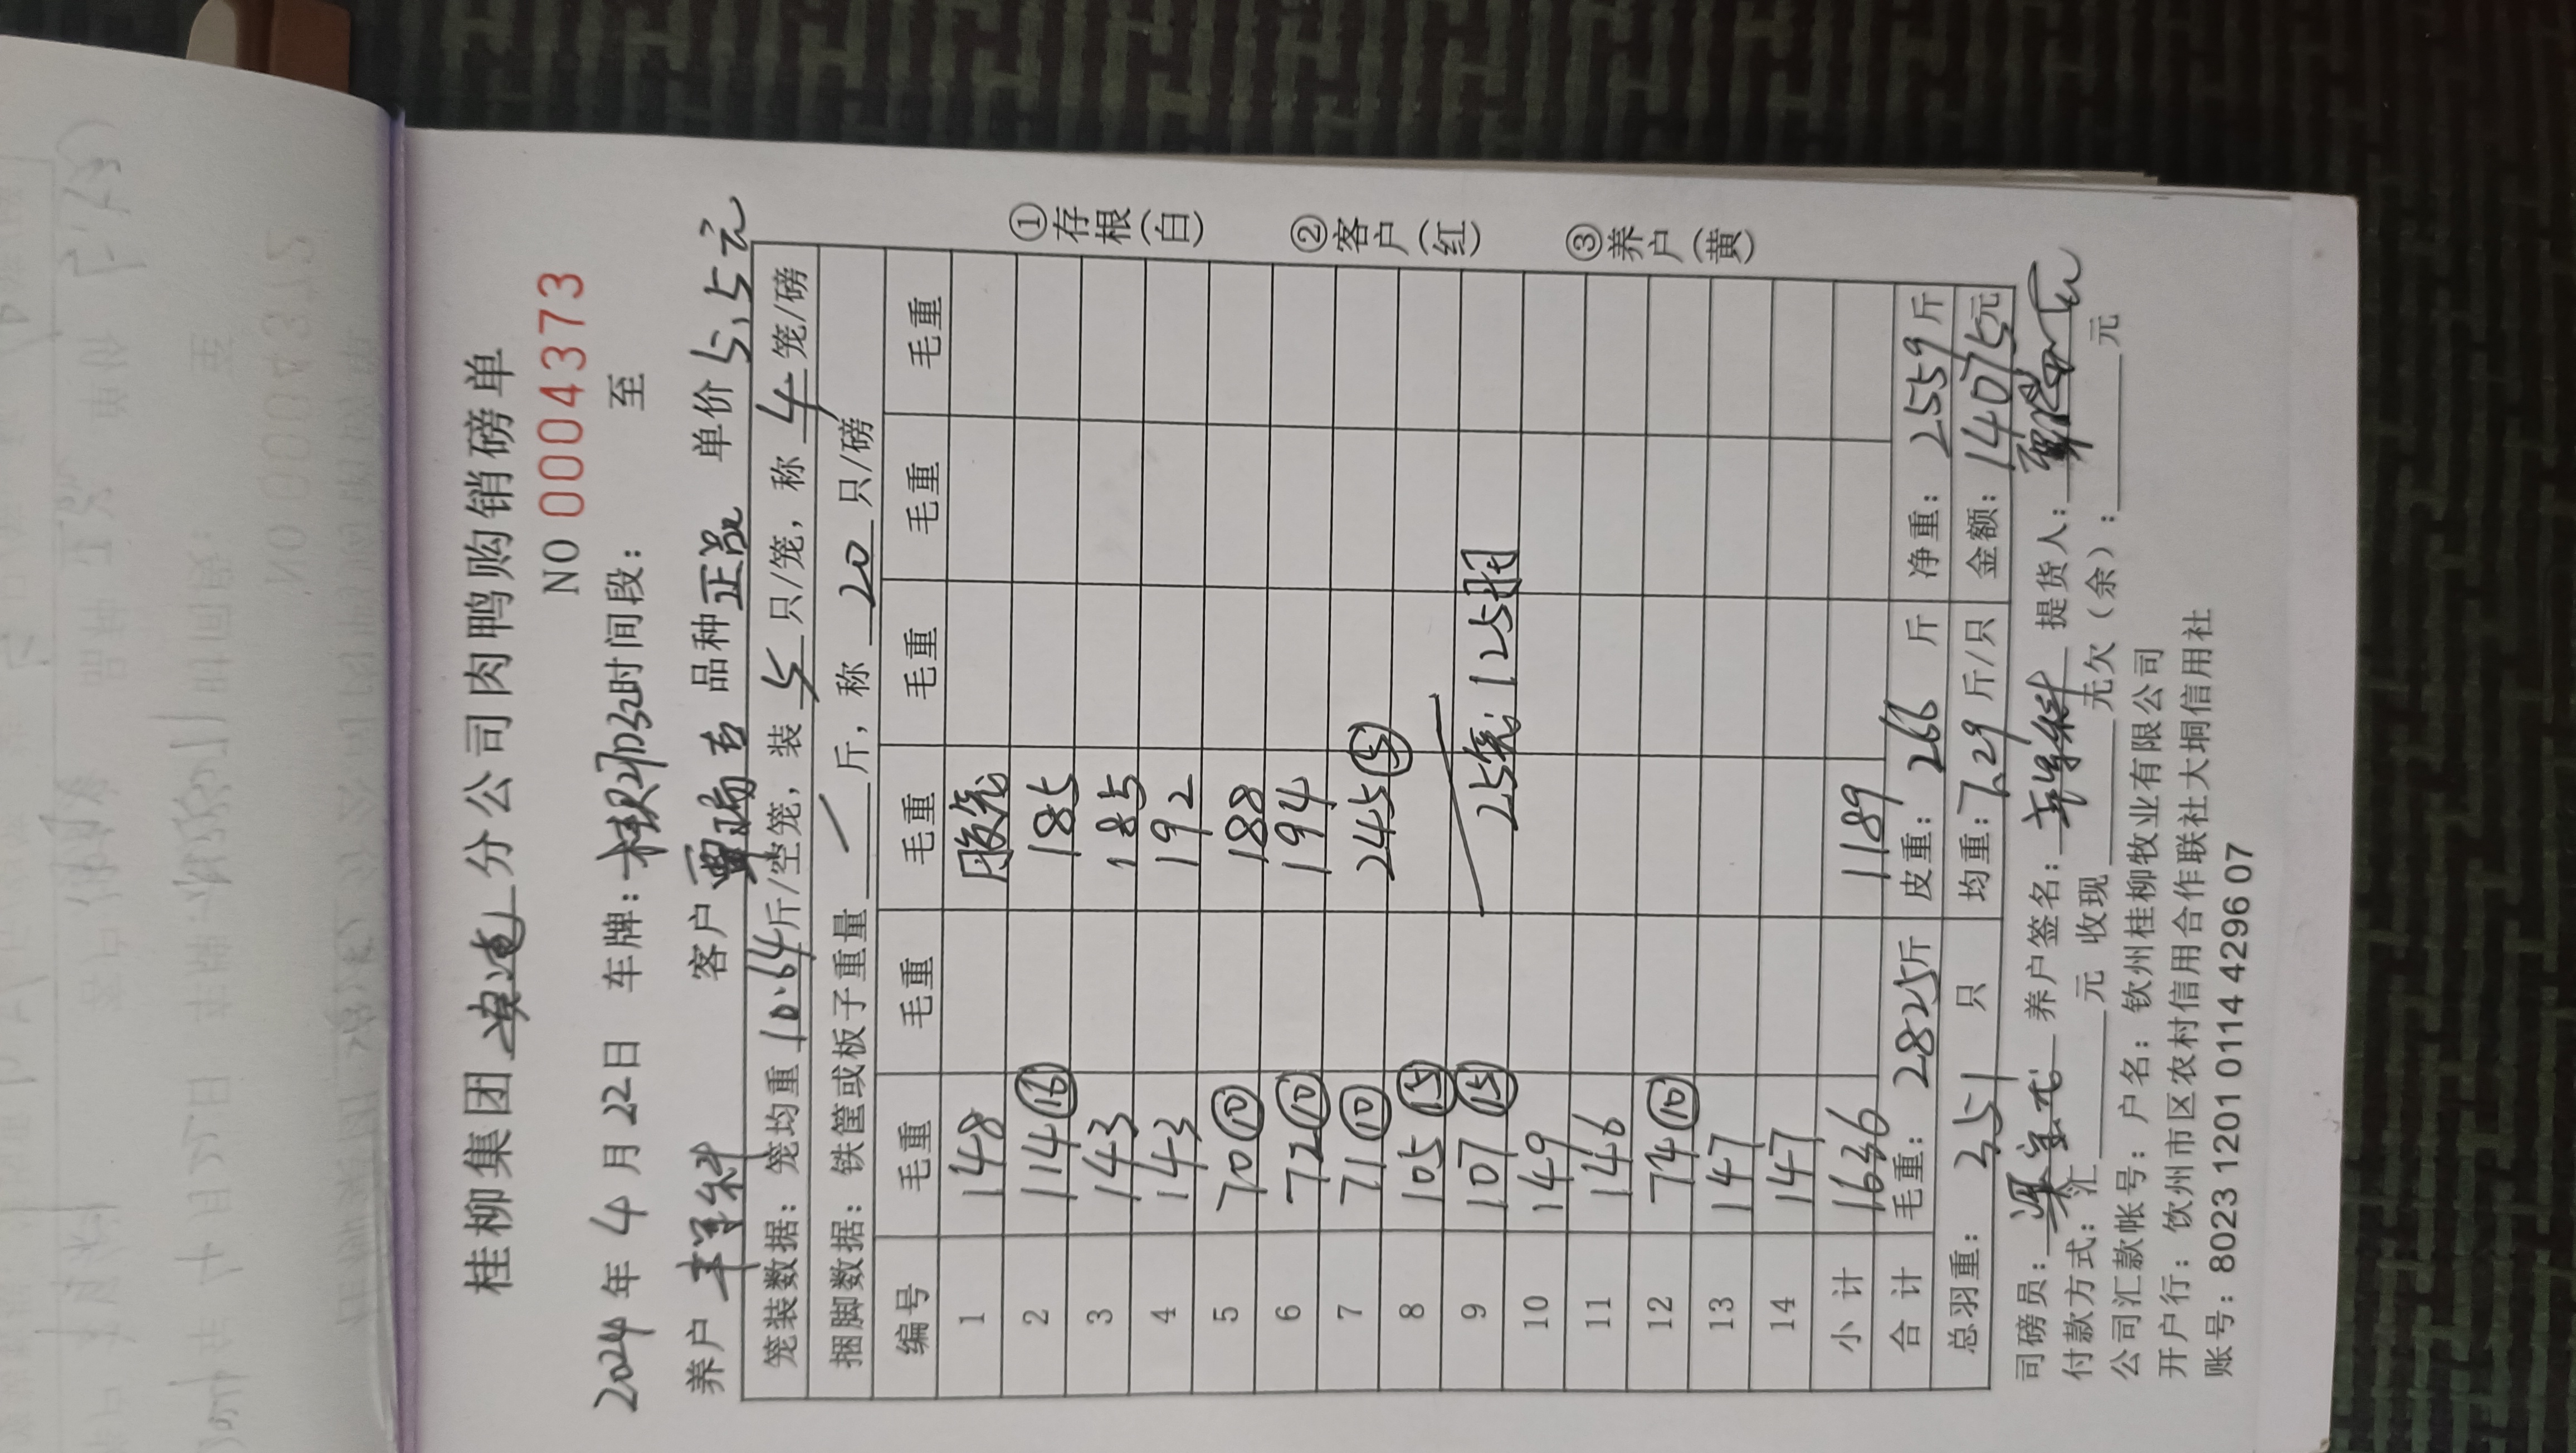 桂柳集团 分公司肉鸭购销磅单
NO 0004373
2024年 4月 22日 车牌: 时间段: 至
养户 客户 品种 正品 单价 5.5元
笼装数据: 笼均重 10.64 斤/空笼, 装 5 只/笼, 称 4 笼/磅
捆脚数据: 铁筐或板子重量 / 斤, 称 20 只/磅
编号 毛重 毛重 毛重 毛重 毛重 毛重
1 148 胶笼
2 114 ⑯ 185
3 143 185
4 143 192
5 70 ⑩ 188
6 72 ⑩ 194
7 71 ⑩ 245 ⑤
8 105 ⑮
9 107 ⑮ 25笼; 125羽
10 149
11 146
12 74 ⑩
13 147
14 147
小计 1636 1189
合计 毛重: 2825斤 皮重: 266 斤 净重: 2559斤
总羽重: 351 只 均重: 7.29 斤/只 金额: 14075元
司磅员: 养户签名: 提货人:
付款方式: 汇 元 收现 元欠(余): 元
公司汇款帐号: 户名: 钦州桂柳牧业有限公司
开户行: 钦州市区农村信用合作联社大垌信用社
账号: 8023 1201 0114 4296 07
①存根(白)
②客户(红)
③养户(黄)